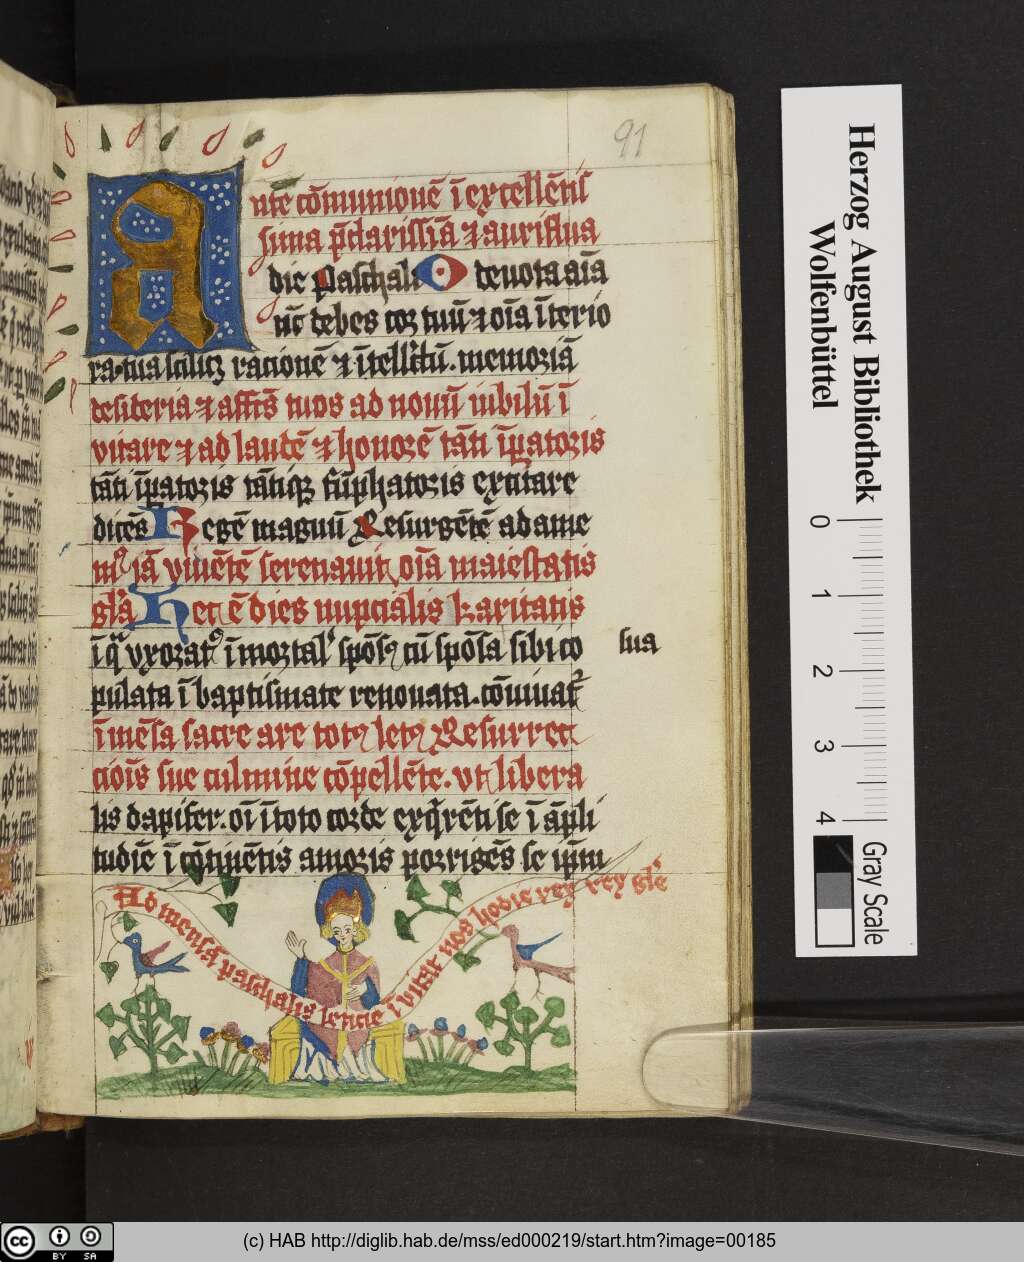 91
Ante cōmunionē ī excellētis
sima p̄clarissīa ⁊ auriflua
die Paschali O deuota aīa
nūc debes cor tuū ⁊ oīa īterio
ra tua scilicꝫ racionē ⁊ ītellc̄tū. memoriā
desideria ⁊ affc̄s tuos ad nouū iubilū ī
uitare ⁊ ad laudē ⁊ honorē tāti īp̄atoris
tāti īp̄atoris tātiqꝫ tⁱūphatoris excitare
dicēs Regē magnū Resurgētē adame
mꝰ iā viuētē serenauit oīa maiestatis
gl̄a Hec ē dies nupcialis karitatis
ī q̄ vxoratꝰ īmortalꝭ spōsꝰ cū spōsa sibi co
sua
pulata ī baptismate renouata. cōuiuat̄
ī mēsa sacre are totꝰ letꝰ Resurrec
ciōis sue culmine cōpellēte. vt libera
lis dapifer. oī ī toto corde exq̄rēti se ī āpli
tudīe ī cōtinētis amoris porrigēs se ip̄m
Ad mensā paschalis leticie īuitat nos hodie rex rex gl̄e
Herzog August Bibliothek
Wolfenbüttel
0 1 2 3 4
Gray Scale
cc BY SA
(c) HAB http://diglib.hab.de/mss/ed000219/start.htm?image=00185